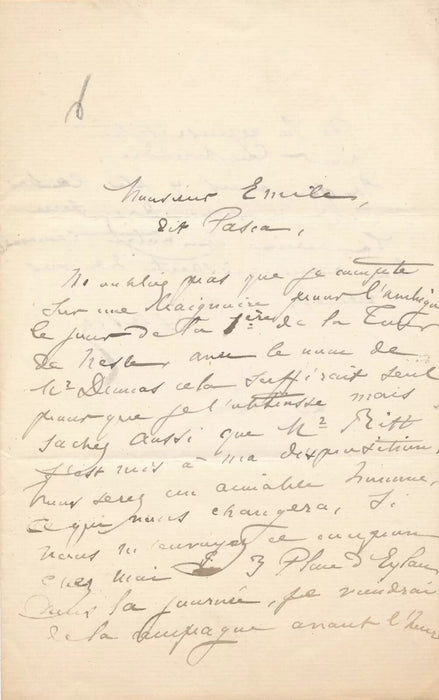 Monsieur Emile,
dit Pasca,
N'oubliez pas que je compte
sur une Baignoire pour l'ambigu
le jour de la 1ère de la Tour
de Nesle avec le nom de
Mr Dumas cela suffirait seul
pour que je l'obtienne mais
sachez aussi que Mr Ritt
s'est mis à ma disposition,
vous serez un aimable homme,
ce qui vous changera, si
vous m'envoyez ce coupon
chez moi 3 Place d'Eylau
dans la journée, je viendrai
de la campagne avant l'heure